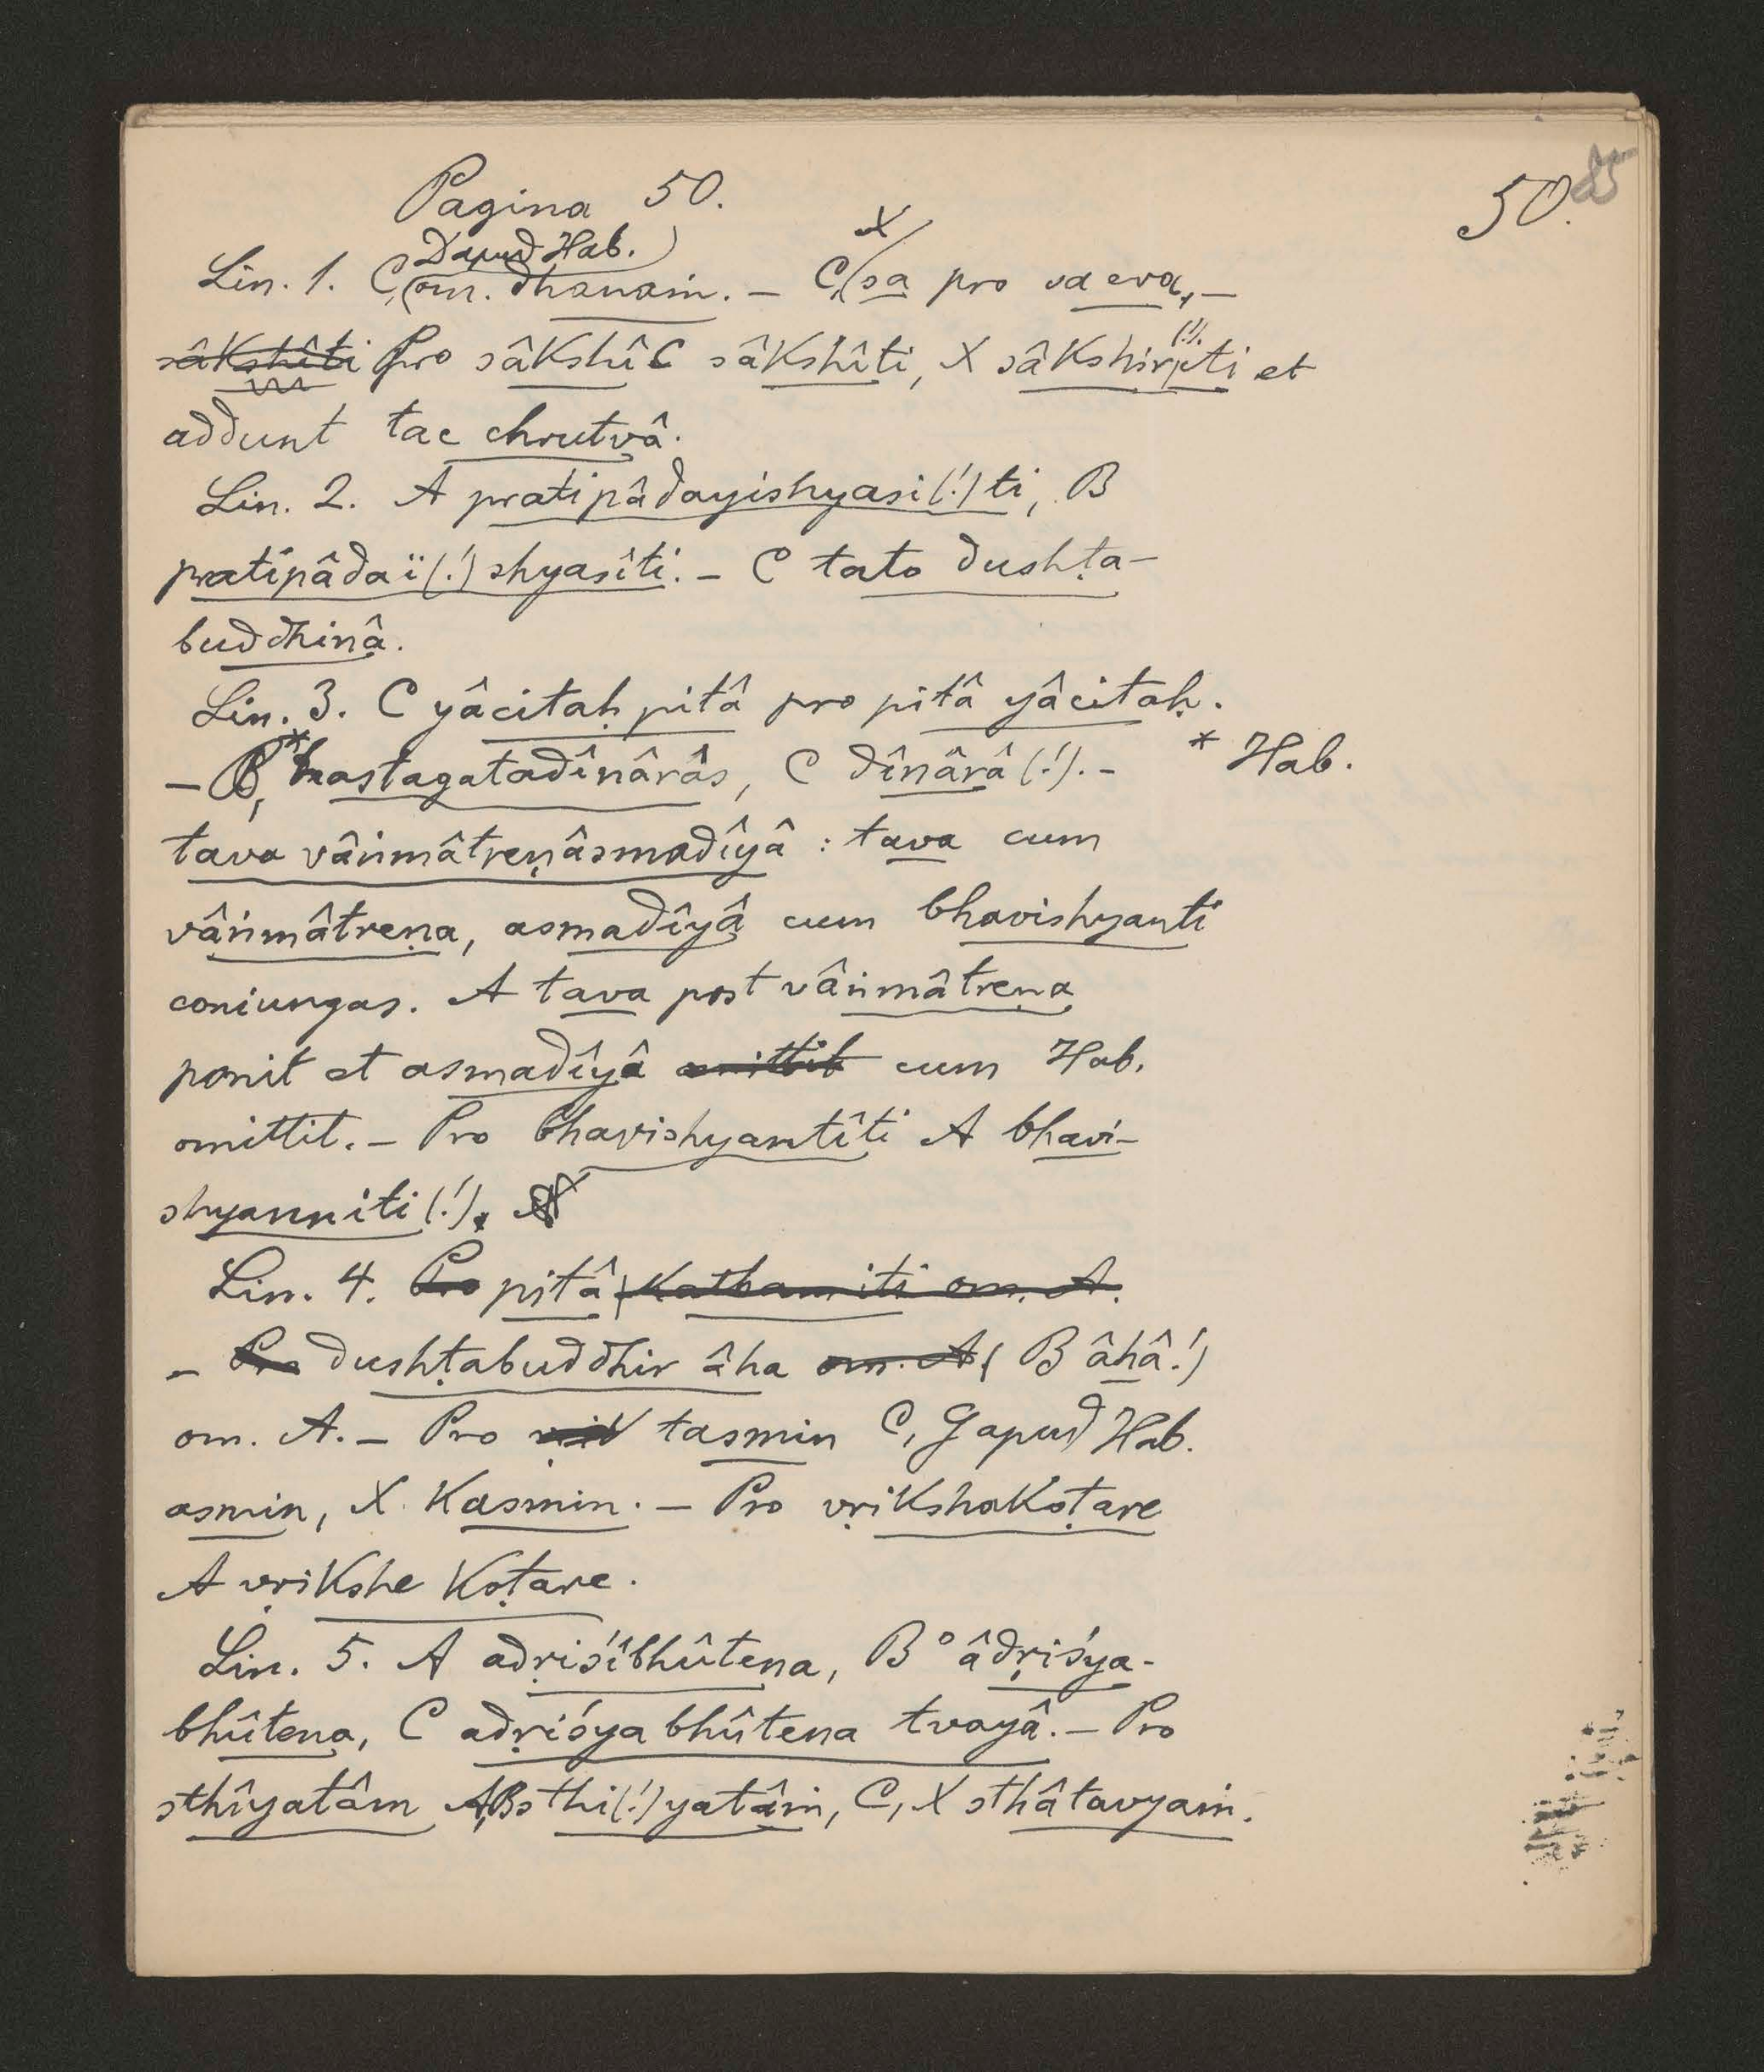 50. 25
Pagina 50.
D apud Hab.)
Lin. 1. C, (om. dhanaṁ. – C, X sa pro sa eva, –
sâkshîti Pro sâkshî C sâkshîti, X sâkshir (!) iti et
addunt tac chrutvâ.
Lin. 2. A pratipâdayishyasi (!) ti, B
pratipâdaï (!) shyasîti. – C tato dushṭa-
buddhinâ.
Lin. 3. C yâcitaḥ pitâ pro pitâ yâcitaḥ.
– B, * hastagatadînârâs, C dînârâ (!). – * Hab.
tava vâṅmâtreṇâsmadîyâ : tava cum
vâṅmâtreṇa, asmadîyâ cum bhavishyanti
coniungas. A tava post vâṅmâtreṇa
ponit et asmadîyâ omittit cum Hab.
omittit. – Pro bhavishyantîti A bhavi-
shyanniti (!).
Lin. 4. Pro pitâ kathamiti om. A.
– Pro dushṭabuddhir âha om. A ( B âhâ!)
om. A. – Pro tasmin C, G apud Hab.
asmin, X kasmin. – Pro vṛikshakoṭare
A vṛikshe koṭare.
Lin. 5. A adṛiśîbhûtena, B °âdṛiśya-
bhûtena, C adṛiśyabhûtena tvayâ. – Pro
sthîyatâm A, B sthi (!) yatâṁ, C, X sthâtavyaṁ.